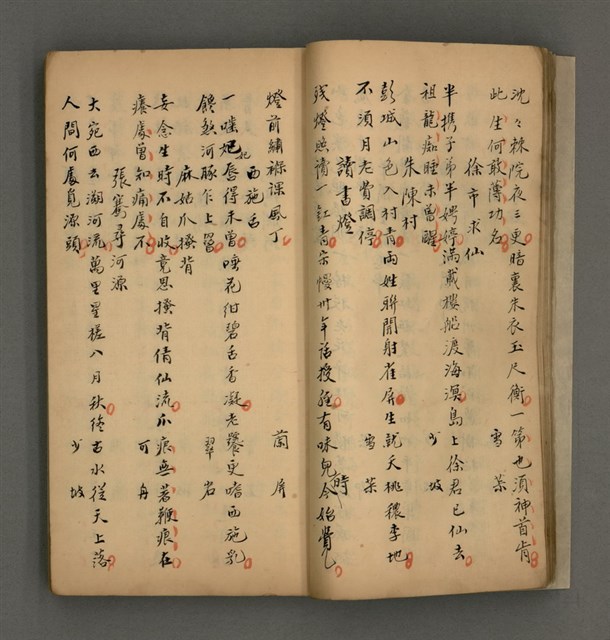 沈々棘院夜三更暗裏朱衣玉尺衡一第也須神首肯
此生何敢薄功名　雪萊
徐市求仙
半携子弟半娉婷滿載樓船渡海溟島上徐君已仙去
祖龍痴睡未曾醒　少坡
朱陳村
彭城山色入村青兩姓聯開射雀屏生就夭桃穠李地
不須月老費調停　雪萊
讀書燈
殘燈照讀一釭青宗幔卅年話授經有味兒時今始覺
燈前繡祿課風丁　蘭屏
西施舌
一嗤妃唇得未曾唾花紺碧舌香凝老饕更嗜西施乳
饞煞河豚乍上罾　翠岩
麻姑爪搔背
妄念生時不自收竟思搔背倩仙流爪痕無著鞭痕在
癢處曾知痛處不　可舟
張騫尋河源
大宛西去溯河流萬里星槎八月秋終古水從天上落
人間何處覓源頭　少坡